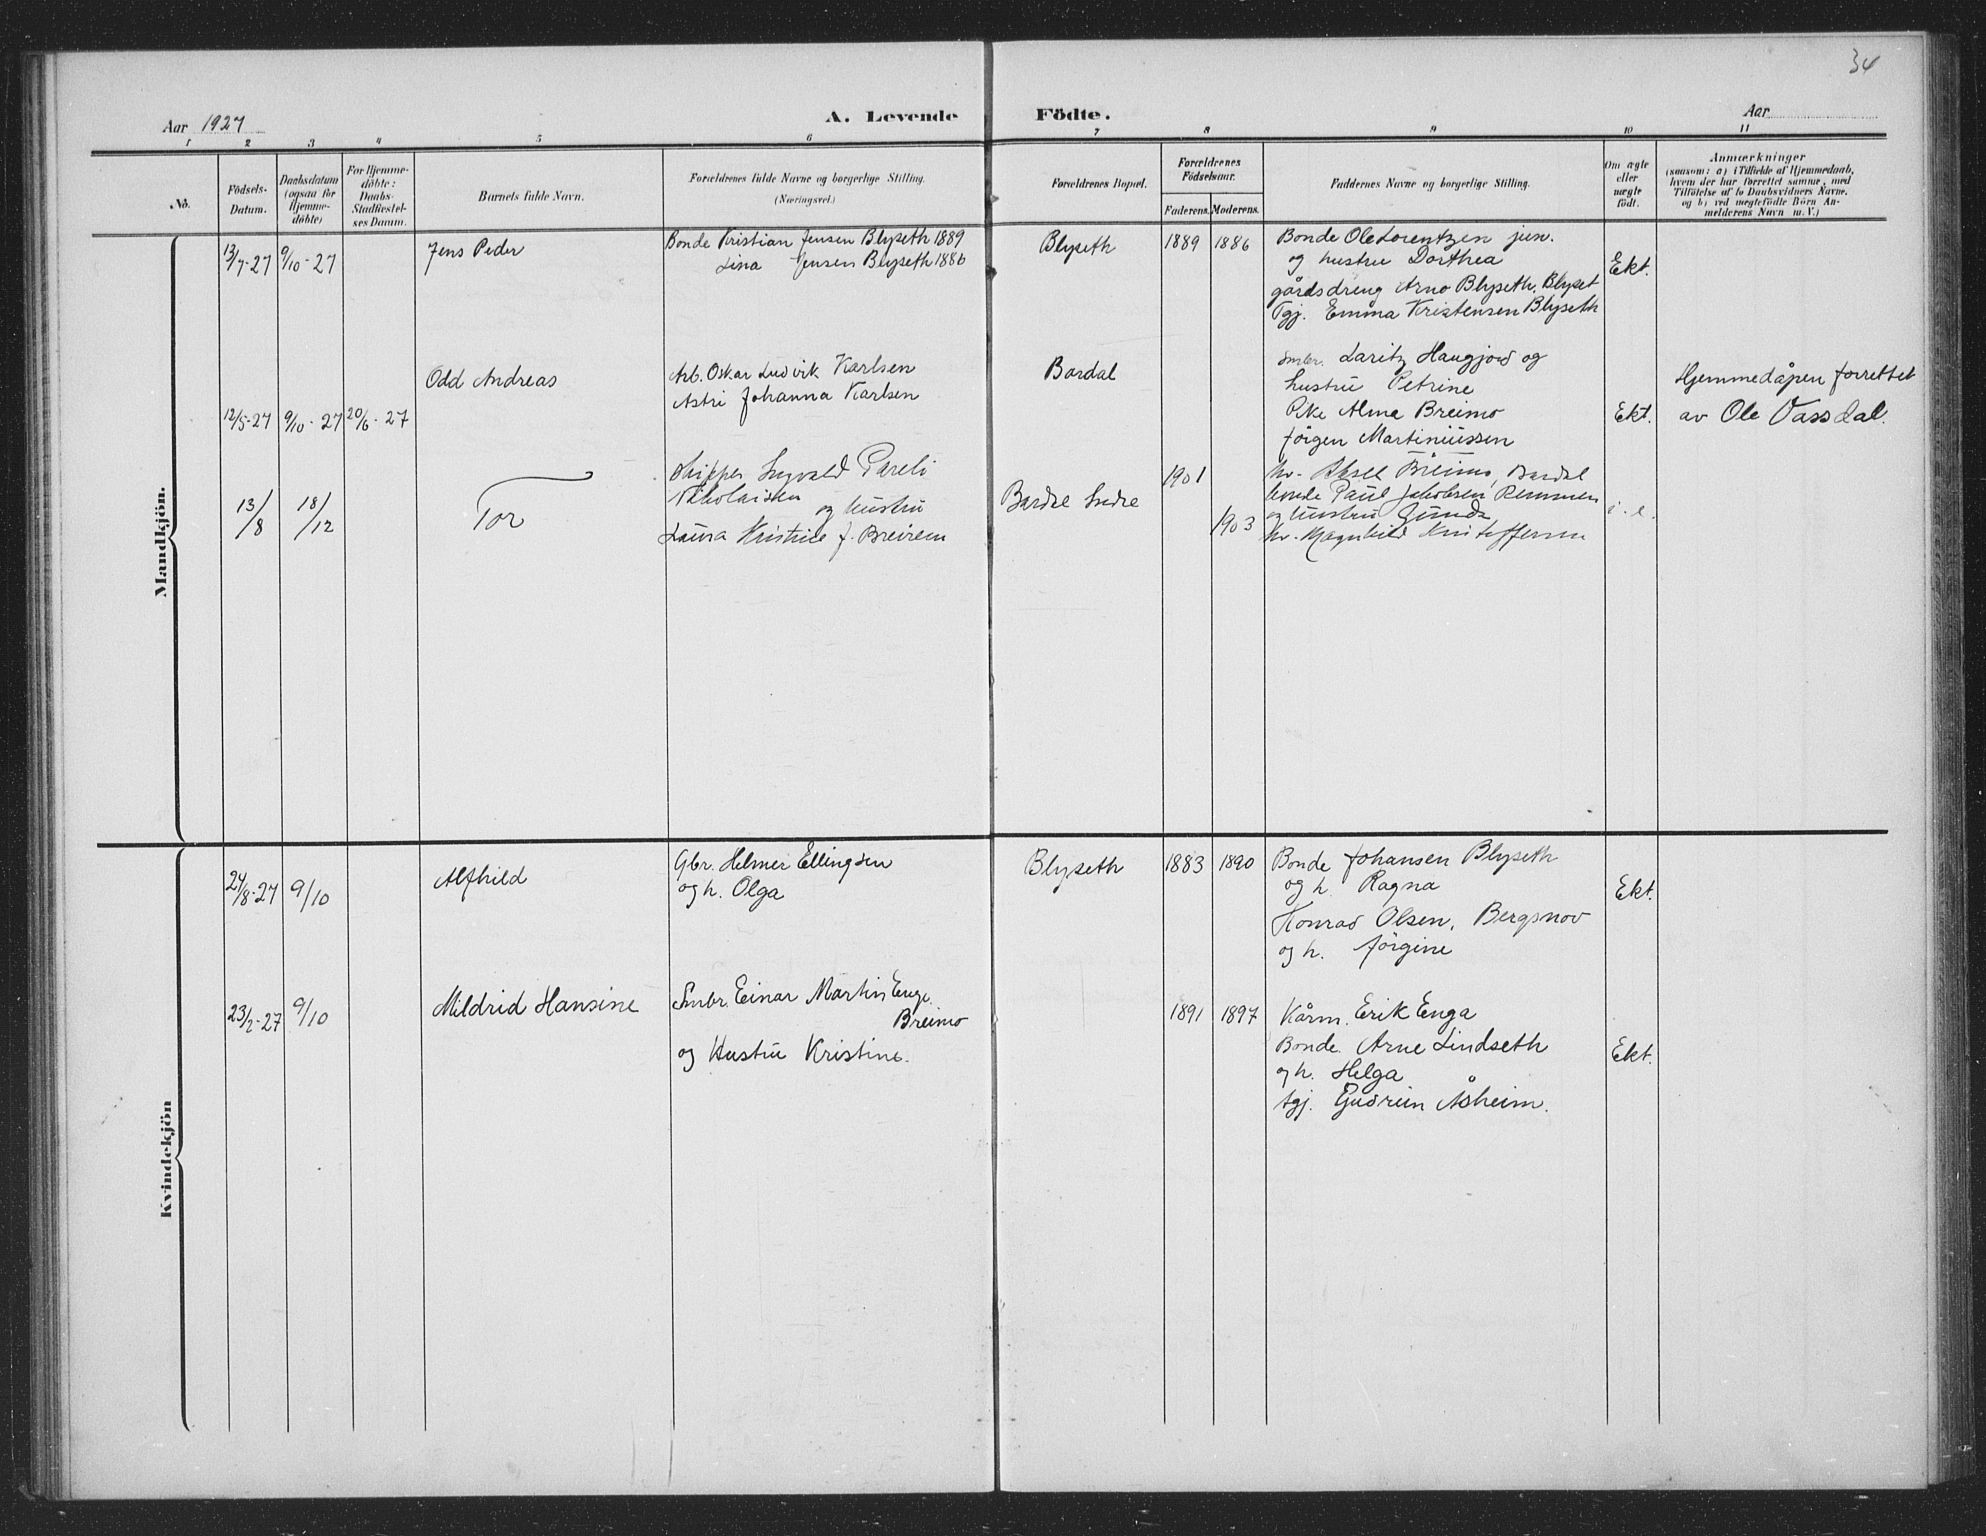 34
Aar 1927
A. Levende Födte.
Aar
1 2 3 4 5 6 7 8 9 10 11
No.
Födsels-
Datum.
Daabsdatum
(ogsaa for
Hjemme-
döbte)
For Hjemme-
döbte:
Daabs-
Stadfæstel-
ses Datum.
Barnets fulde Navn.
Forældrenes fulde Navne og borgerlige Stilling.
(Næringsvei.)
Forældrenes Bopæl.
Forældrenes
Födselsaar.
Faderens. Moderens.
Faddernes Navne og borgerlige Stilling.
Om ægte
eller
uægte
födt.
Anmærkninger
(saasom: a) i Tilfælde af Hjemmedaab,
hvem der har forrettet samme, med
Tilföielse af to Daabsvidners Navne,
og b) ved uægtefödte Börn An-
melderens Navn m. V.)
Mandkjön.
13/7-27 9/10-27
Jens Peder
Bonde Kristian Jensen Blyseth 1889
Lina Jensen Blyseth 1886
Blyseth
1889 1886
Bonde Ole Lorentzen jun.
og hustru Dorthea
gårdsdreng Arno Blyseth, Blyset
Tgj. Emma Kristensen Blyseth
Ekt.
12/5-27 9/10-27 20/6-27
Odd Andreas
Arb. Oskar Ludvik Karlsen
Astri Johanna Karlsen
Bardal
Smbr. Laritz Haugjord og
hustru Petrine
Pike Alma Breimo
Jörgen Martiniussen
Ekt.
Hjemmedåpen forrettet
av Ole Vassdal.
13/8 18/12
Tor
Skipper Ingvald Pareli
Nikolaisen
og hustru
Laura Kristine f. Breirem
Bardal Indre
1901
1903
Breimo, Bardal
bonde Paul Jakobsen Remmen
og hustru Gunda
Magnhild Kristoffersen
i. e.
Kvindekjön
24/8-27 9/10
Alfhild
Gbr. Helmer Ellingsen
og h. Olga
Blyseth
1883 1890
Bonde Johansen Blyseth
og h. Ragna
Konrad Olsen, Bergsnov
og h. Jörgine
Ekt.
23/2-27 9/10
Mildrid Hansine
Smbr. Einar Martin Enge
Breimo
og Hustru Kristine.
1891 1897
Kårm. Erik Enga
Bonde. Arne Lindseth
og h. Helga
tgj. Gudrun Åsheim.
Ekt.